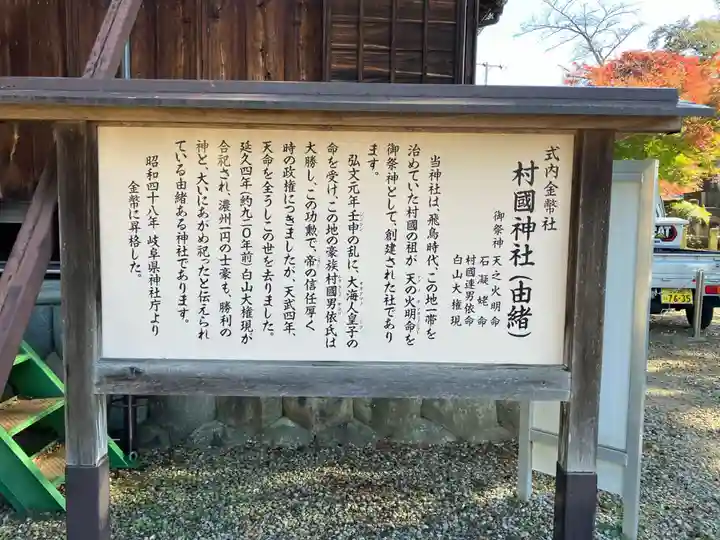 式内金幣社
村國神社(由緒)
御祭神 天之火明命
石凝姥命
村國連男依命
白山大権現
当神社は、飛鳥時代、この地一帯を
治めていた村國の祖が、天の火明命を
御祭神として、創建された社であり
ます。
弘文元年壬申の乱に、大海人皇子の
命を受け、この地の豪族村國男依氏は
大勝し、この功勲で、帝の信任厚く
時の政権につきましたが、天武四年、
天命を全うしこの世を去りました。
延久四年(約九二〇年前)白山大権現が
合祀され、濃州一円の士豪も、勝利の
神と、大いにあがめ祀ったと伝えられ
ている由緒ある神社であります。
昭和四十八年 岐阜県神社庁より
金幣に昇格した。
CAT
76-35